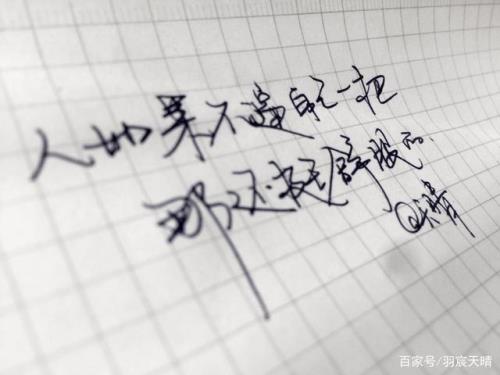 人如果不逼自己一把
那还挺舒服的.
@天晴
百家号/羽宸天晴